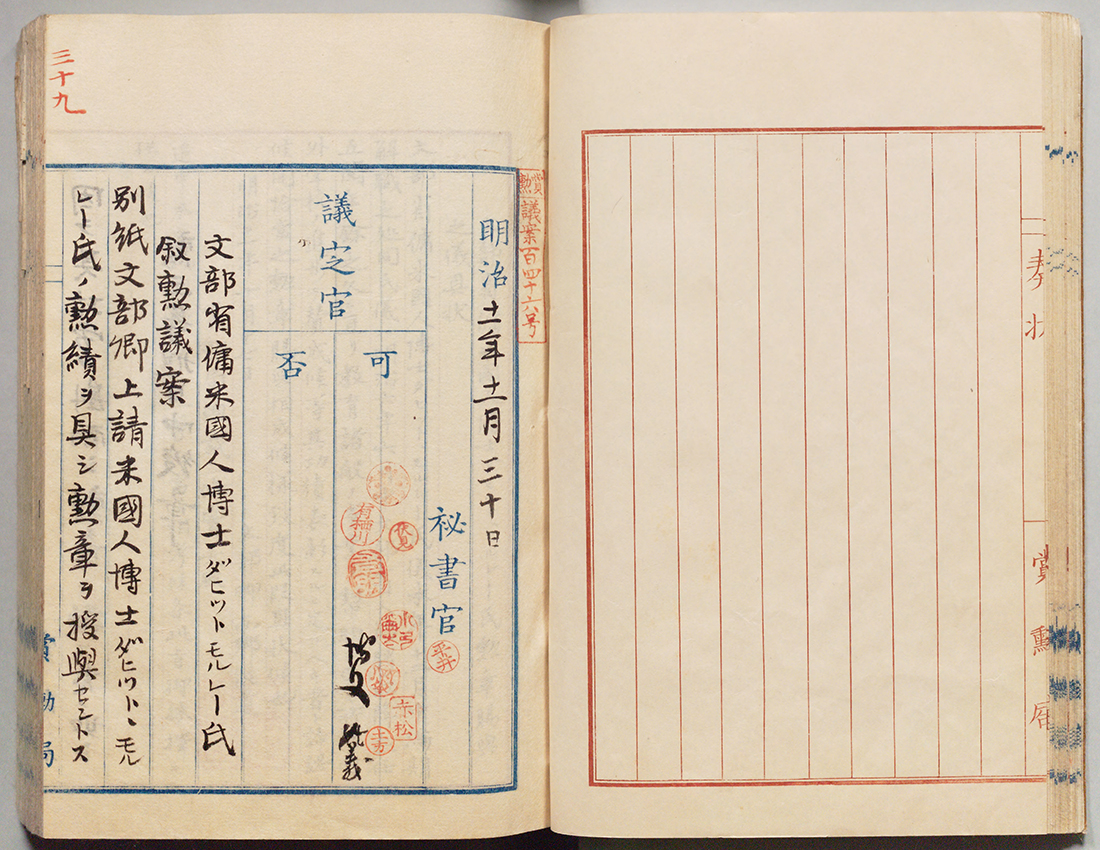 奏状
賞勲局
三十九
賞勲
議案百四十六号
明治十一年十二月三十日
秘書官
平井
議定官
可
否
有栖川
伏見
赤松
土方
博文
文部省傭米國人博士ダヒットモルレー氏
叙勲議案
別紙文部卿上請米國人博士ダヒットヽモル
レー氏ノ勲績ヲ具シ勲章ヲ授與セントス
賞勲局